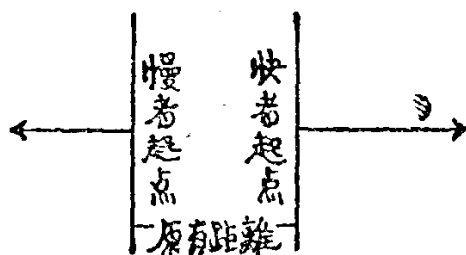 慢者起点
快者起点
原有距離